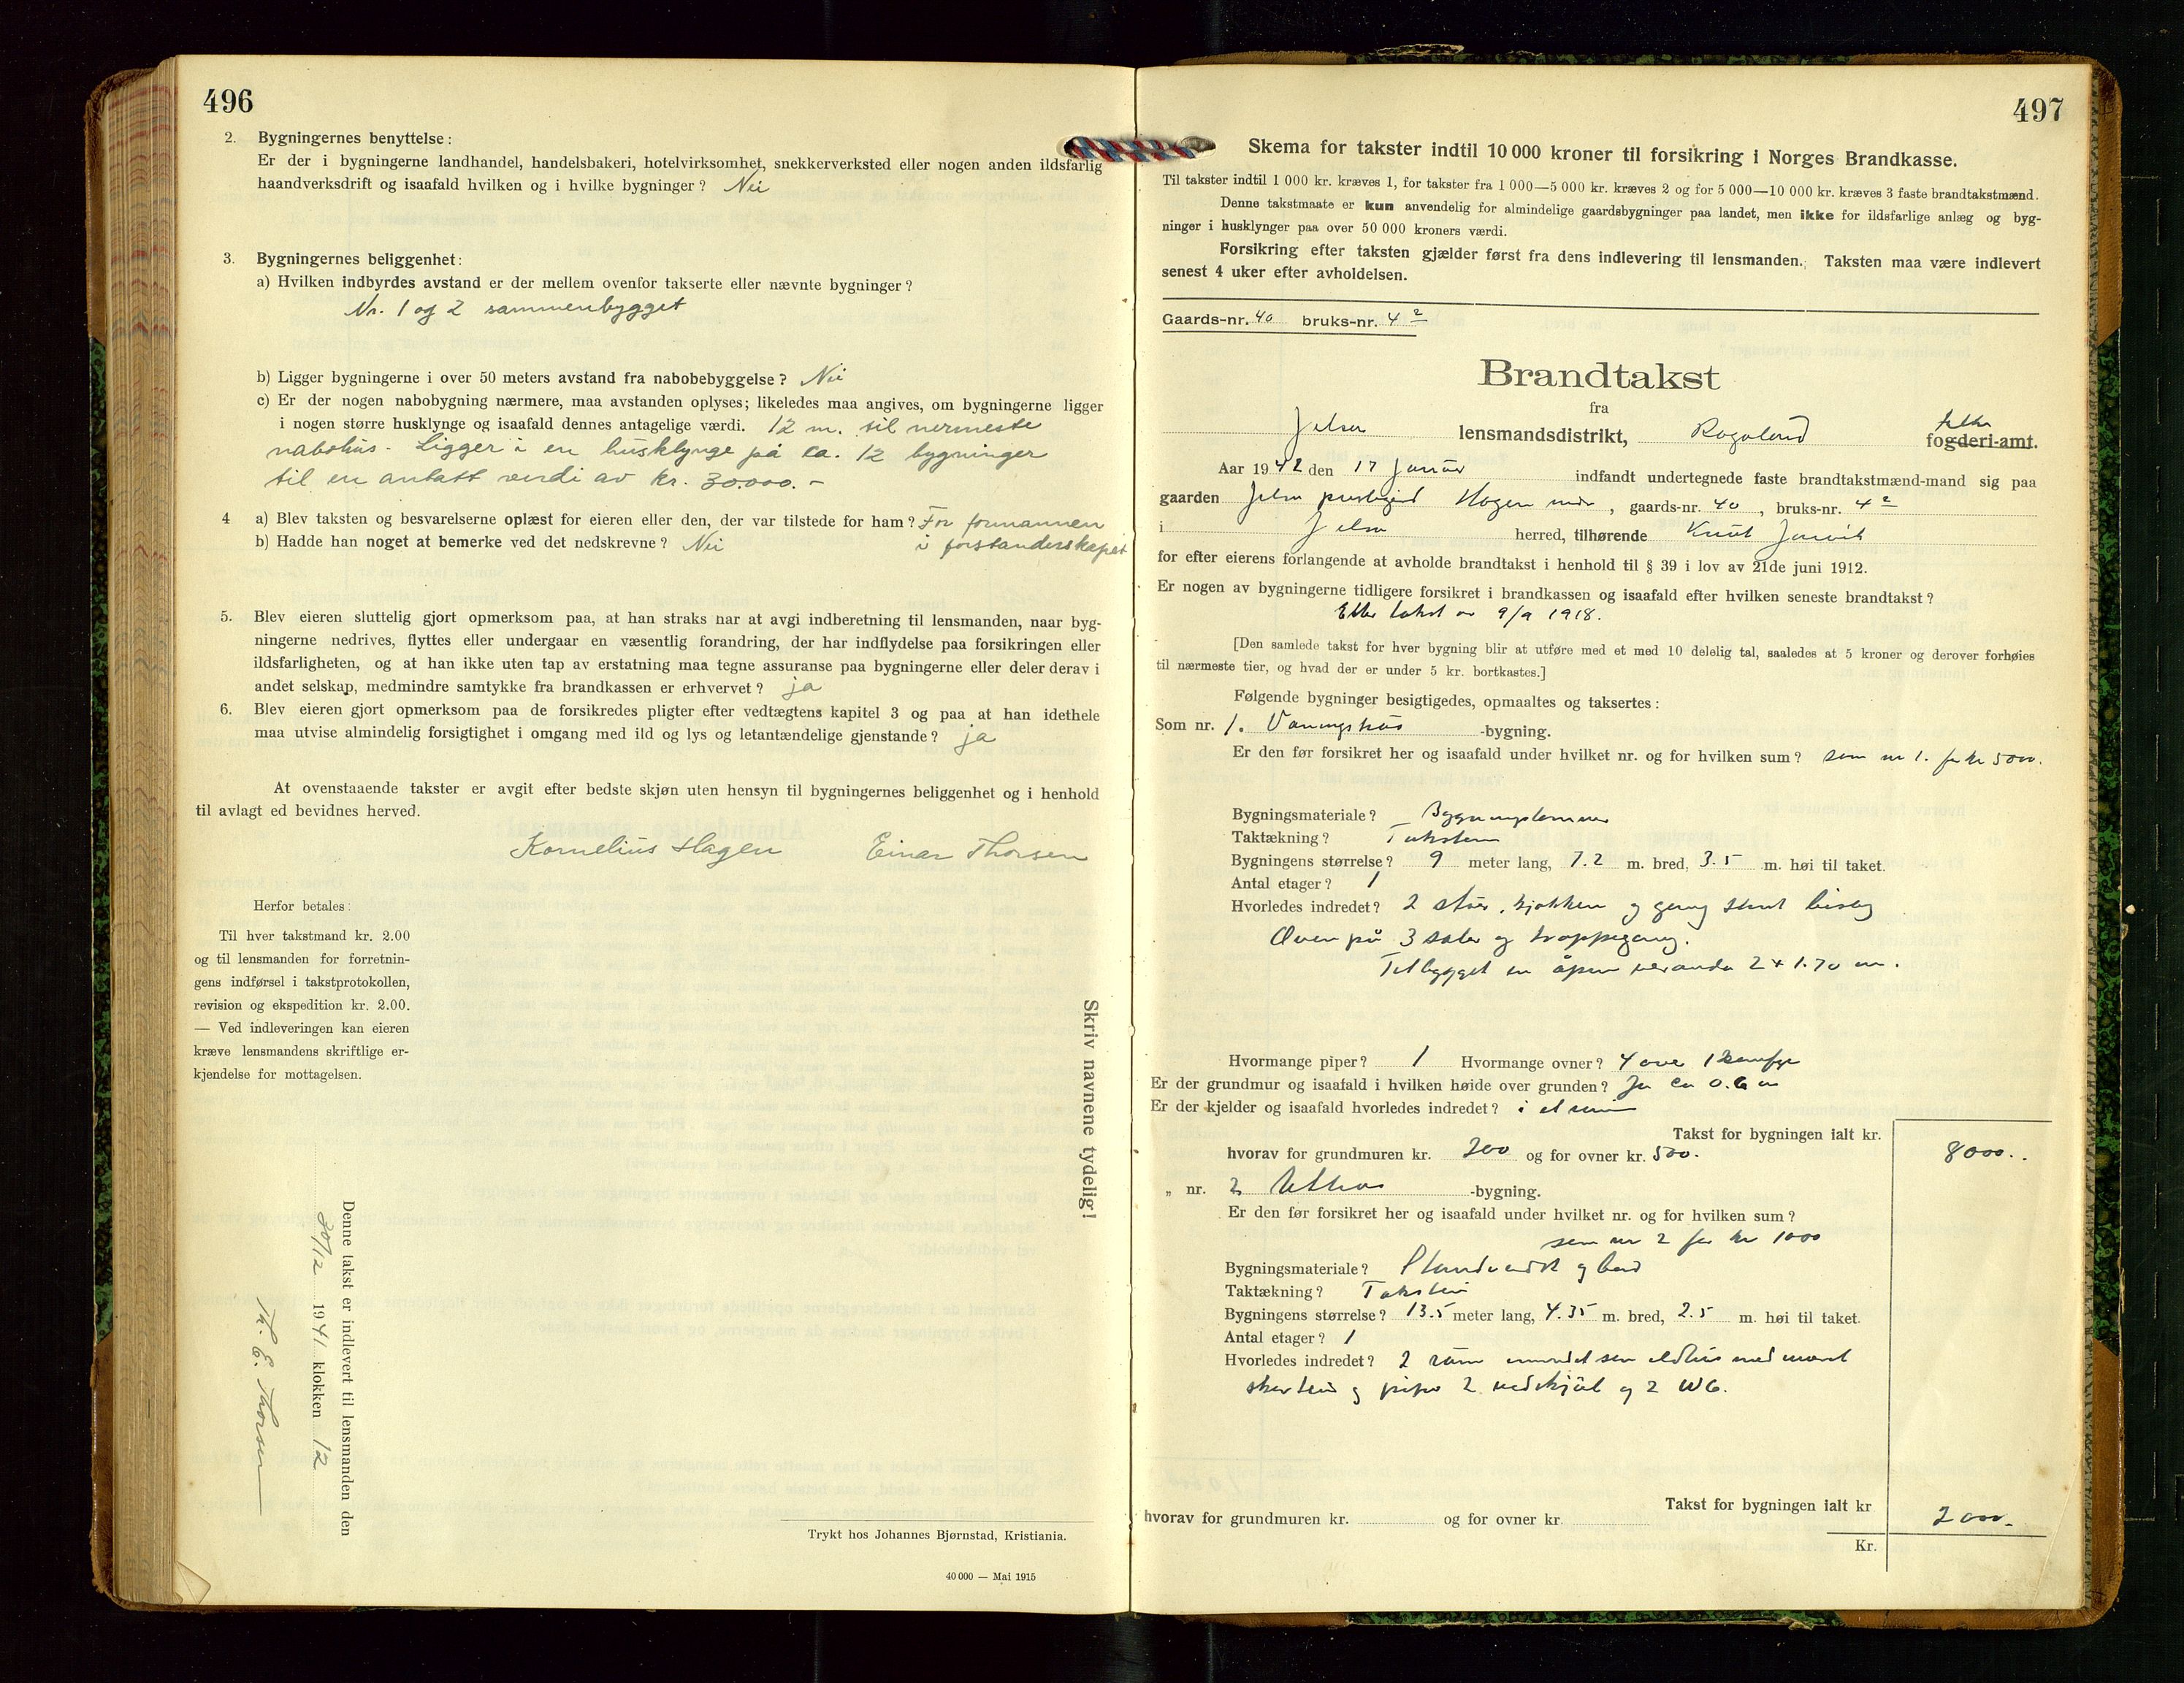 496
2. Bygningernes benyttelse:
Er der i bygningerne landhandel, handelsbakeri, hotelvirksomhet, snekkerverksted eller nogen anden ildsfarlig
haandverksdrift og isaafald hvilken og i hvilke bygninger? Nei
3. Bygningernes beliggenhet:
a) Hvilken indbyrdes avstand er der mellem ovenfor takserte eller nævnte bygninger?
Nr. 1 og 2 sammenbygget
b) Ligger bygningerne i over 50 meters avstand fra nabobebyggelse? Nei
c) Er der nogen nabobygning nærmere, maa avstanden oplyses; likeledes maa angives, om bygningerne ligger
i nogen større husklynge og isaafald dennes antagelige værdi. 12 m. til nermeste
nabohus. Ligger i en husklynge på ca. 12 bygninger
til en antatt verdi av kr. 30.000.-
4 a) Blev taksten og besvarelserne oplæst for eieren eller den, der var tilstede for ham? For formannen
b) Hadde han noget at bemerke ved det nedskrevne? Nei i forstanderskapet
5. Blev eieren sluttelig gjort opmerksom paa, at han straks har at avgi indberetning til lensmanden, naar byg-
ningerne nedrives, flyttes eller undergaar en væsentlig forandring, der har indflydelse paa forsikringen eller
ildsfarligheten, og at han ikke uten tap av erstatning maa tegne assuranse paa bygningerne eller deler derav i
andet selskap, medmindre samtykke fra brandkassen er erhvervet? ja
6. Blev eieren gjort opmerksom paa de forsikredes pligter efter vedtægtens kapitel 3 og paa at han idethele
maa utvise almindelig forsigtighet i omgang med ild og lys og letantændelige gjenstande? ja
At ovenstaaende takster er avgit efter bedste skjøn uten hensyn til bygningernes beliggenhet og i henhold
til avlagt ed bevidnes herved.
Kornelius Hagen Einar Thorsen
Herfor betales:
Til hver takstmand kr. 2.00
og til lensmanden for forretnin-
gens indførsel i takstprotokollen,
revision og ekspedition kr. 2.00.
— Ved indleveringen kan eieren
kræve lensmandens skriftlige er-
kjendelse for mottagelsen.
Skriv navnene tydelig!
Denne takst er indlevert til lensmanden den
30/12 1941 klokken 12
Th. E. Thorsen
Trykt hos Johannes Bjørnstad, Kristiania.
40 000 — Mai 1915
497
Skema for takster indtil 10 000 kroner til forsikring i Norges Brandkasse.
Til takster indtil 1 000 kr. kræves 1, for takster fra 1 000—5 000 kr. kræves 2 og for 5 000—10 000 kr. kræves 3 faste brandtakstmænd.
Denne takstmaate er kun anvendelig for almindelige gaardsbygninger paa landet, men ikke for ildsfarlige anlæg og byg-
ninger i husklynger paa over 50 000 kroners værdi.
Forsikring efter taksten gjælder først fra dens indlevering til lensmanden. Taksten maa være indlevert
senest 4 uker efter avholdelsen.
Gaards-nr. 40 bruks-nr. 4 2
Brandtakst
fra
Jelsa lensmandsdistrikt, Rogaland fylke fogderi-amt.
Aar 1942 den 17 Januar indfandt undertegnede faste brandtakstmænd-mand sig paa
gaarden Jelsa prestegård Hagen , gaards-nr. 40 , bruks-nr. 4 2
i Jelsa herred, tilhørende Knut
for efter eierens forlangende at avholde brandtakst i henhold til § 39 i lov av 21de juni 1912.
Er nogen av bygningerne tidligere forsikret i brandkassen og isaafald efter hvilken seneste brandtakst?
Etter takst av 9/9 1918.
[Den samlede takst for hver bygning blir at utføre med et med 10 delelig tal, saaledes at 5 kroner og derover forhøies
til nærmeste tier, og hvad der er under 5 kr. bortkastes.]
Følgende bygninger besigtigedes, opmaaltes og taksertes:
Som nr. 1. Våningshus -bygning.
Er den før forsikret her og isaafald under hvilket nr. og for hvilken sum? som nr 1. for kr 5000.
Bygningsmateriale? Bygningstømmer
Taktækning? Taksten
Bygningens størrelse? 9 meter lang, 7.2 m. bred, 3.5 m. høi til taket.
Antal etager? 1
Hvorledes indredet? 2 stuer, kjøkken og gang samt bislag
Oven på 3 saler og trappegang.
Tilbygget en åpen veranda 2 x 1.70 m.
Hvormange piper? 1 Hvormange ovner? 4 ovner 1 komfyr
Er der grundmur og isaafald i hvilken høide over grunden? Ja ca 0.6 m
Er der kjelder og isaafald hvorledes indredet? i et rum
Takst for bygningen ialt kr.
hvorav for grundmuren kr. 200 og for ovner kr. 500. 8000..
„ nr. 2 Uthus -bygning.
Er den før forsikret her og isaafald under hvilket nr. og for hvilken sum?
som nr 2 for kr 1000
Bygningsmateriale? og bord
Taktækning? Takstein
Bygningens størrelse? 13.5 meter lang, 4.35 m. bred, 2.5 m. høi til taket.
Antal etager? 1
Hvorledes indredet? 2 rum innredet som eldhus med muret
skorstein og pipe 2 vedskjul og 2 WC.
Takst for bygningen ialt kr
hvorav for grundmuren kr. og for ovner kr. 2000.
Kr.